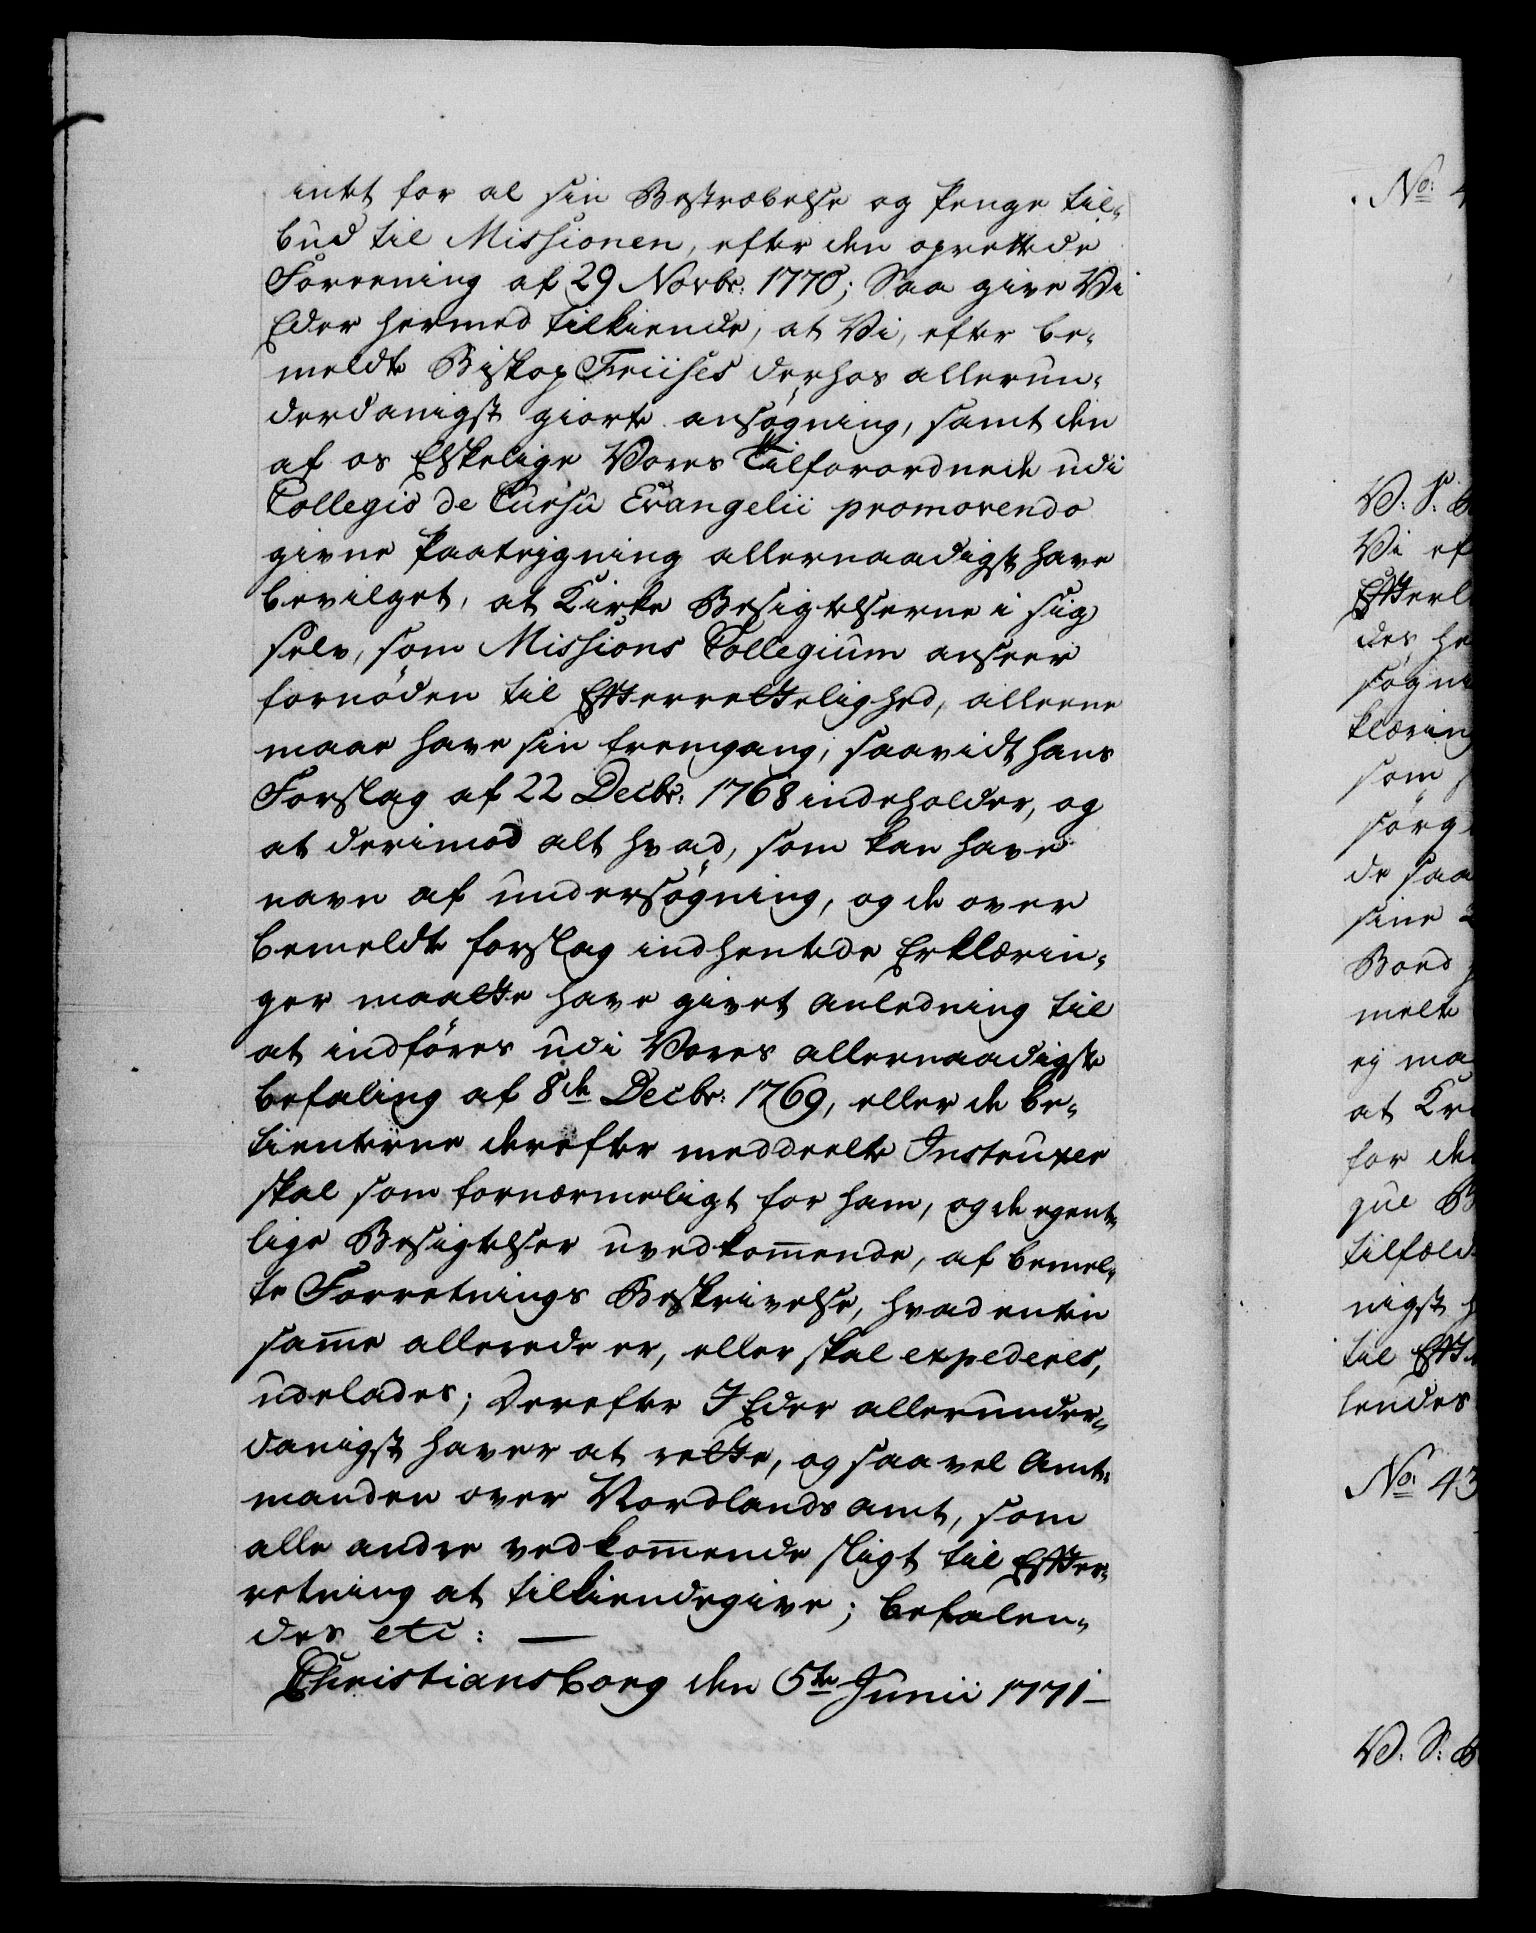 intet for al sin Bestræbelse og Penge til-
bud til Missionen, efter den oprettede
Foreening af 29 Novbr: 1770; Saa give Vi
Eder hermed tilkiende, at Vi, efter be-
meldte Biskop Friises derhos allerun-
derdanigst giorte ansøgning, samt den
af os Elskelige Vores Tilforordnede udi
Collegio de Cursu Evangelii promovendo
givne Paategning allernaadigst have
bevilget, at Kirke Besigtelserne i sig
selv, som Missions Collegium anseer
fornøden til Efterrettelighed, alleene
maae have sin fremgang, saavidt hans
Forslag af 22 Decbr: 1768 indeholder, og
at derimod alt hvad, som kan have
navn af undersøgning, og de over
bemeldte forslag indhentede Erklærin-
ger maatte have givet anledning til
at indføres udi Vores allernaadigste
befaling af 8de Decbr: 1769, eller de be-
tienterne derefter meddeelte Instruxer
skal som fornærmeligt for ham, og de egent-
lige Besigtelser uvedkommende, af bemel-
te Forretnings Beskrivelse, hvad enten
samme allerede er, eller skal expederes,
udelades; Derefter I Eder allerunder-
danigst haver at rette, og saavel Amt-
manden over Nordlands amt, som
alle andre vedkommende sligt til Efter-
retning at tilkiendegive; Befalen-
des etc: —
Christiansborg den 5te Junii 1771 –
No: 4
V: S: B
Vi ef
Efterl
des he
søgni
klæring
som
sørg
de saa
sine
Bond
melte
ej ma
at Kr
for de
que B
tilfæld
nigst h
til Eft
lendes
No: 43
V: S: B